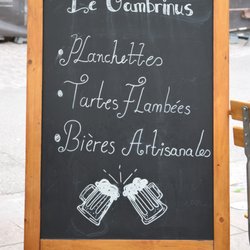 Le Gambrinus
• Planchettes
• Tartes Flambées
• Bières Artisanales